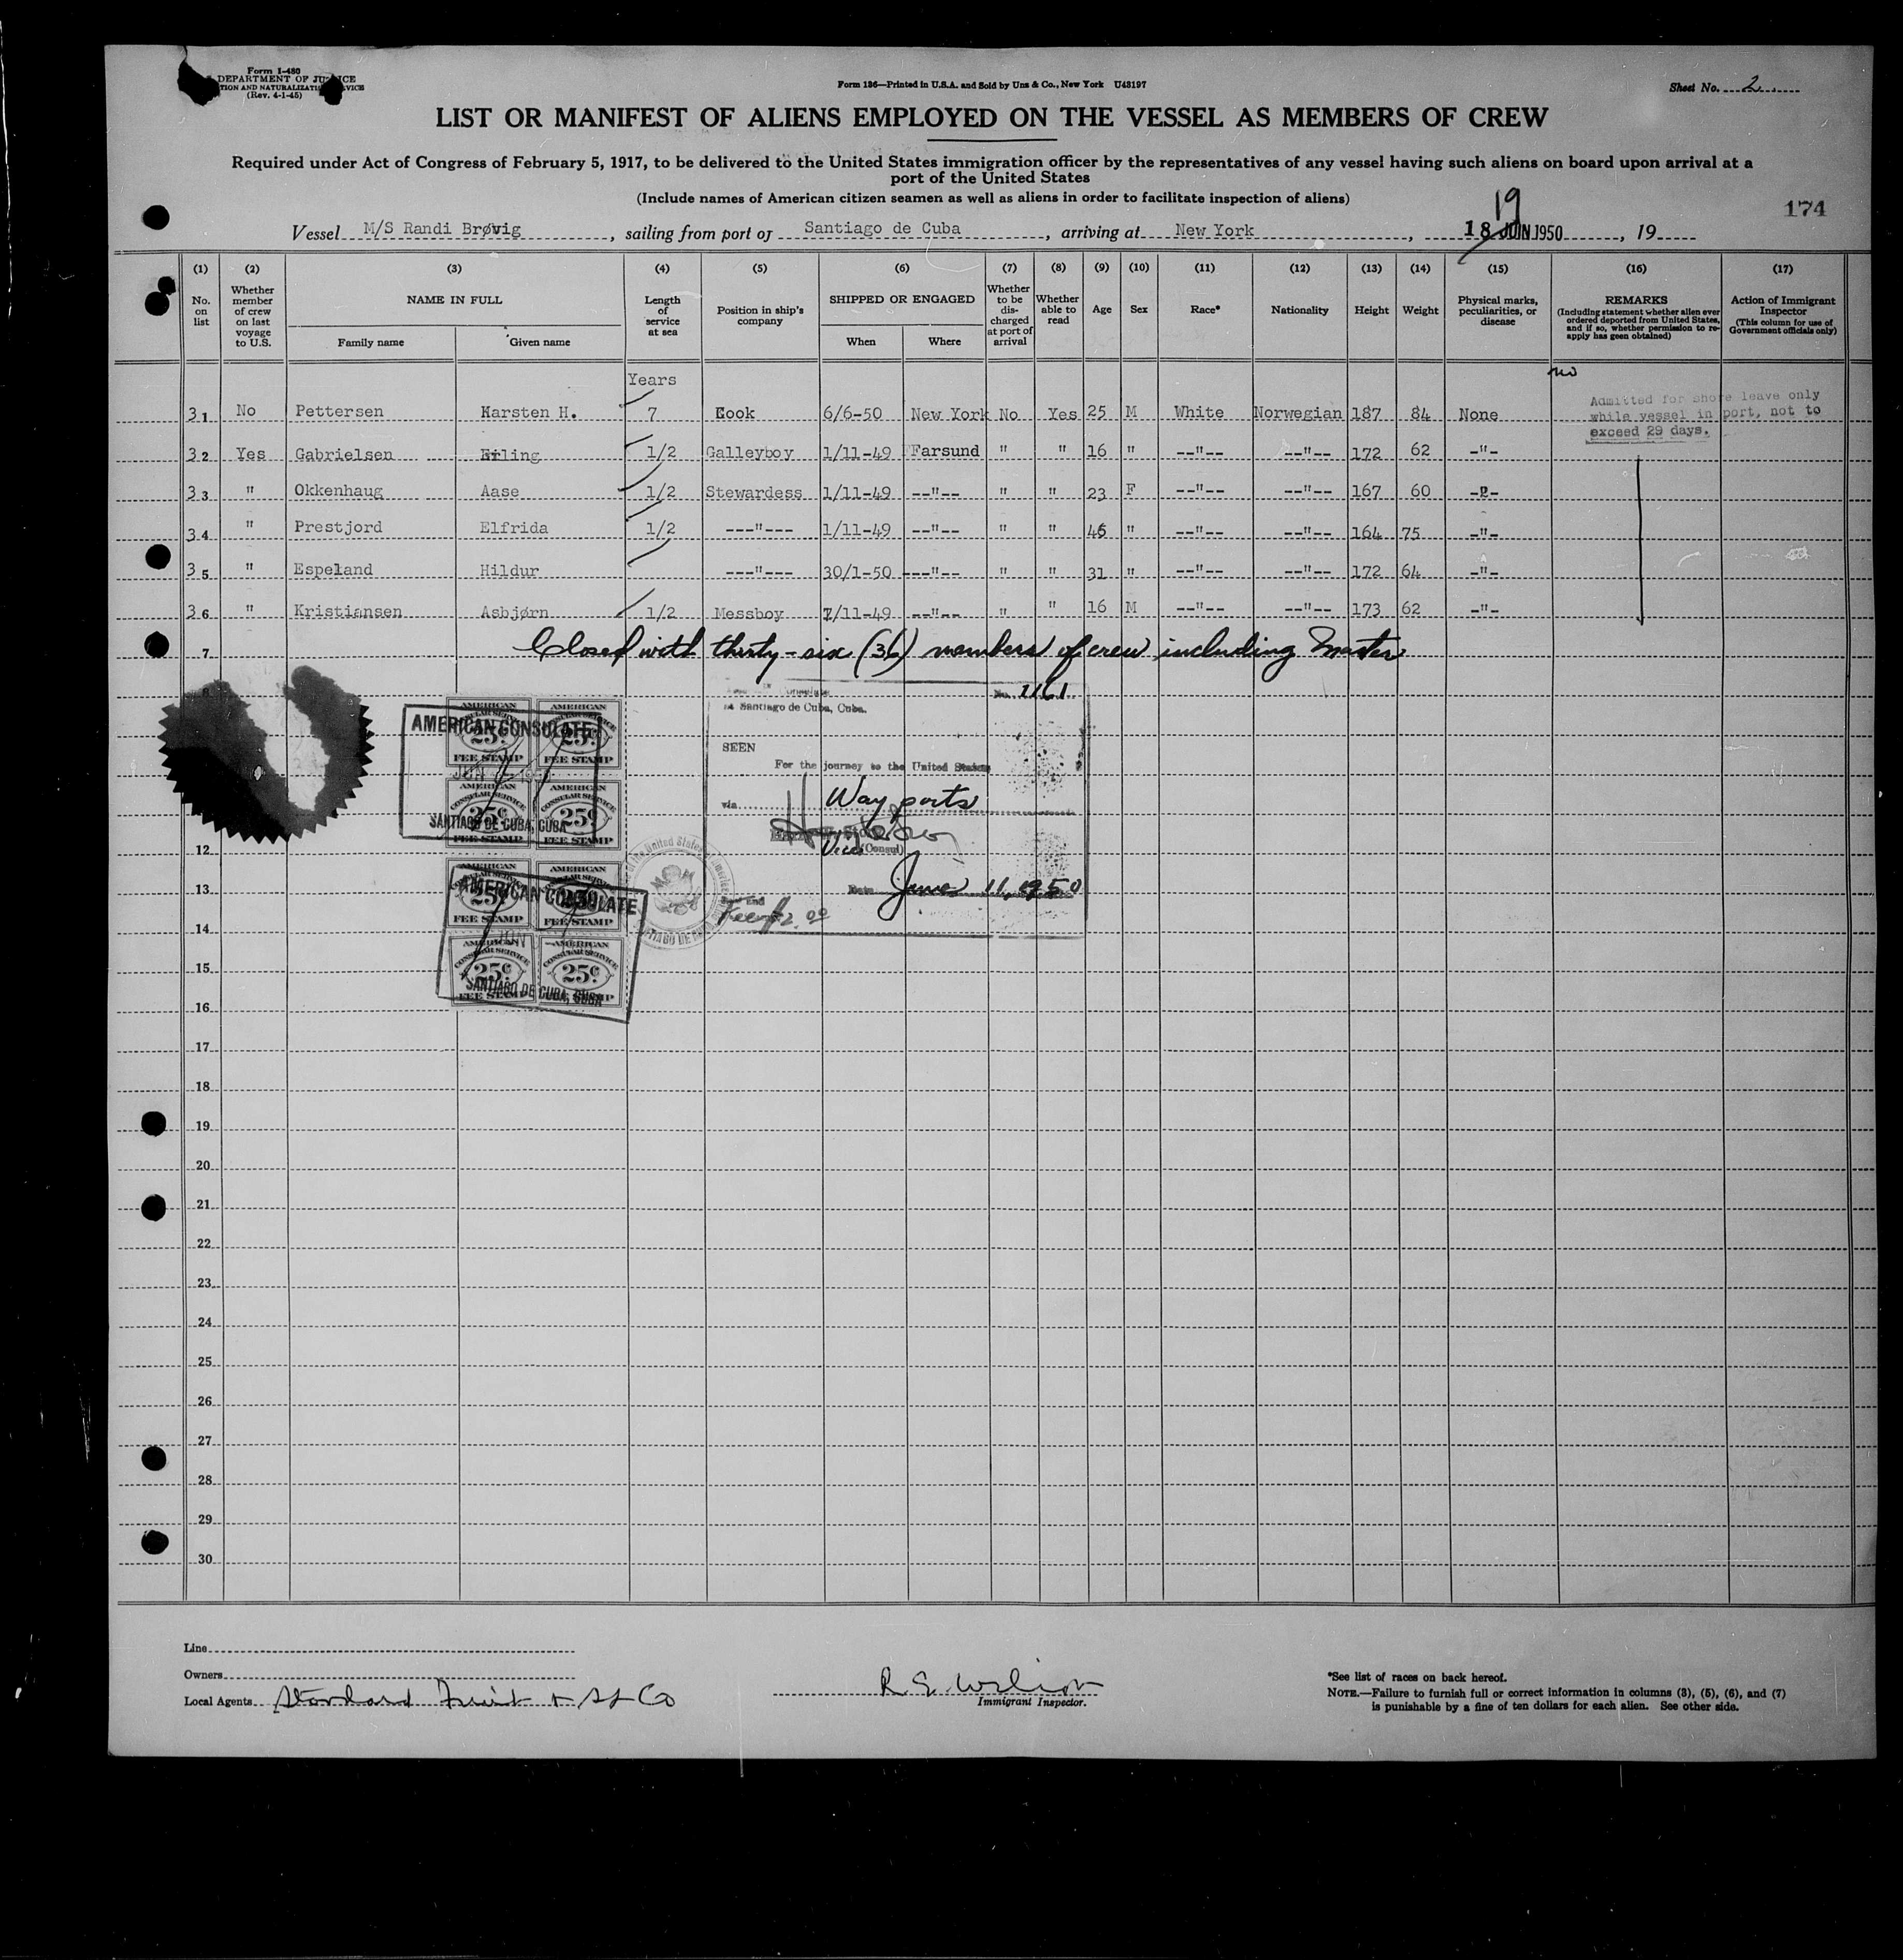 Form I-480
DEPARTMENT OF JUSTICE
TION AND NATURALIZATI VICE
(Rev. 4-1-45)
Form 136—Printed in U.S.A. and Sold by Unz & Co., New York U43197
Sheet No. 2
LIST OR MANIFEST OF ALIENS EMPLOYED ON THE VESSEL AS MEMBERS OF CREW
Required under Act of Congress of February 5, 1917, to be delivered to the United States immigration officer by the representatives of any vessel having such aliens on board upon arrival at a
port of the United States
(Include names of American citizen seamen as well as aliens in order to facilitate inspection of aliens)
19
174
Vessel M/S Randi Brøvig, sailing from port of Santiago de Cuba, arriving at New York, 18 JUN 1950, 19
(1) (2) (3) (4) (5) (6) (7) (8) (9) (10) (11) (12) (13) (14) (15) (16) (17)
No. on list Whether member of crew on last voyage to U.S. NAME IN FULL Family name Given name Length of service at sea Position in ship's company SHIPPED OR ENGAGED When Where Whether to be discharged at port of arrival Whether able to read Age Sex Race* Nationality Height Weight Physical marks, peculiarities, or disease REMARKS (Including statement whether alien ever ordered deported from United States, and if so, whether permission to reapply has geen obtained) Action of Immigrant Inspector (This column for use of Government officials only)
Years
no
31 No Pettersen Karsten H. 7 Cook 6/6-50 New York No Yes 25 M White Norwegian 187 84 None
Admitted for shore leave only
while vessel in port, not to
exceed 29 days.
32 Yes Gabrielsen Erling 1/2 Galleyboy 1/11-49 Farsund " " 16 " --"-- --"-- 172 62 -"-
33 " Okkenhaug Aase 1/2 Stewardess 1/11-49 --"-- " " 23 F --"-- --"-- 167 60 -"-
34 " Prestjord Elfrida 1/2 ---"--- 1/11-49 --"-- " " 46 " --"-- --"-- 164 75 -"-
35 " Espeland Hildur ---"--- 30/1-50 ---"-- " " 31 " --"-- --"-- 172 64 -"-
36 " Kristiansen Asbjørn 1/2 Messboy 7/11-49 --"-- " " 16 M --"-- --"-- 173 62 -"-
7 Closed with thirty-six (36) members of crew including Master
8
No. 1161
Santiago de Cuba, Cuba.
SEEN
For the journey to the United States
via Way ports
Vice (Consul)
Date June 11, 1950
Fee $2.00
AMERICAN CONSULATE
SANTIAGO DE CUBA, CUBA
AMERICAN CONSULATE
JUN
SANTIAGO DE CUBA, CUBA
AMERICAN CONSULAR SERVICE 25¢ FEE STAMP
AMERICAN CONSULAR SERVICE 25¢ FEE STAMP
AMERICAN CONSULAR SERVICE 25¢ FEE STAMP
AMERICAN CONSULAR SERVICE 25¢ FEE STAMP
AMERICAN CONSULAR SERVICE 25¢ FEE STAMP
AMERICAN CONSULAR SERVICE 25¢ FEE STAMP
AMERICAN CONSULAR SERVICE 25¢ FEE STAMP
AMERICAN CONSULAR SERVICE 25¢ FEE STAMP
12
13
14
15
16
17
18
19
20
21
22
23
24
25
26
27
28
29
30
Line
Owners
Local Agents Standard Fruit & SS Co
R E Wilson
Immigrant Inspector.
*See list of races on back hereof.
NOTE.—Failure to furnish full or correct information in columns (3), (5), (6), and (7)
is punishable by a fine of ten dollars for each alien. See other side.